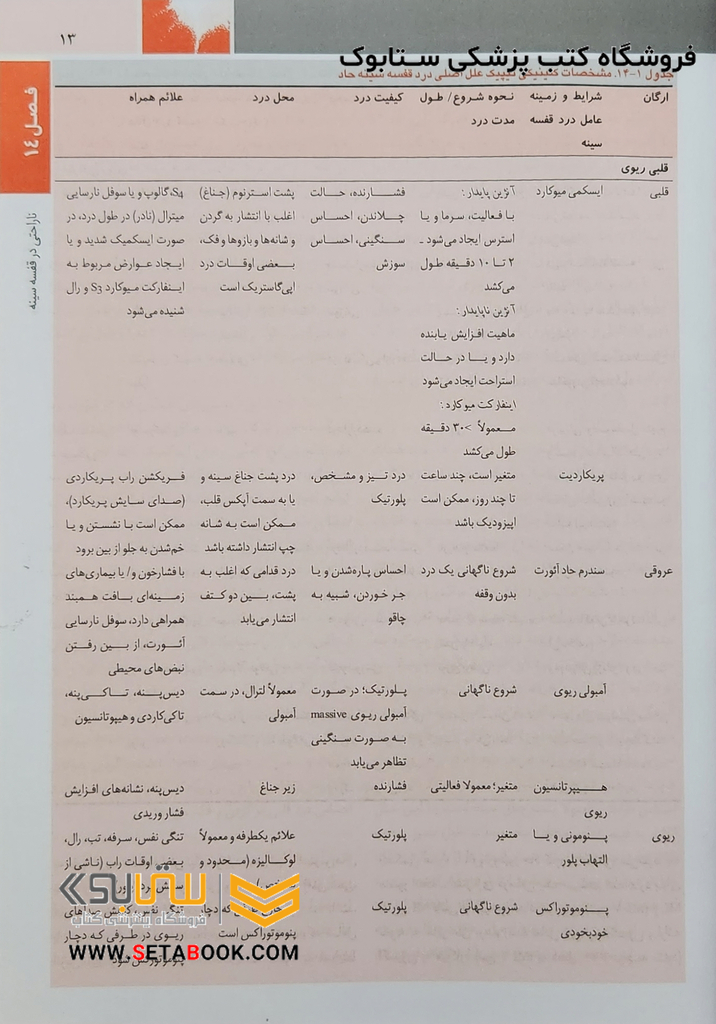 ۱۳
فروشگاه کتب پزشکی ستابوک
جدول ۱-۱۴. مشخصات کلینیکی تیپیک علل اصلی درد قفسه سینه حاد
فصل ۱۴
ناراحتی در قفسه سینه
ارگان
شرایط و زمینه
عامل درد قفسه
سینه
نحوه شروع/ طول
مدت درد
کیفیت درد
محل درد
علائم همراه
قلبی ریوی
قلبی
ایسکمی میوکارد
آنژین پایدار:
با فعالیت، سرما و یا
استرس ایجاد می‌شود ـ
۲ تا ۱۰ دقیقه طول
می‌کشد
آنژین ناپایدار:
ماهیت افزایش یابنده
دارد و یا در حالت
استراحت ایجاد می‌شود
اینفارکت میوکارد:
معمولاً >۳۰ دقیقه
طول می‌کشد
فشارنده، حالت
چلاندن، احساس
سنگینی، احساس
سوزش
پشت استرنوم (جناغ)
اغلب با انتشار به گردن
و شانه‌ها و بازوها و فک،
بعضی اوقات درد
اپی‌گاستریک است
S4، گالوپ و یا سوفل نارسایی
میترال (نادر) در طول درد، در
صورت ایسکمیک شدید و یا
ایجاد عوارض مربوط به
اینفارکت میوکارد S3 و رال
شنیده می‌شود
پریکاردیت
متغیر است، چند ساعت
تا چند روز، ممکن است
اپیزودیک باشد
درد تیز و مشخص،
پلورتیک
درد پشت جناغ سینه و
یا به سمت آپکس قلب،
ممکن است به شانه
چپ انتشار داشته باشد
فریکشن راب پریکاردی
(صدای سایش پریکارد)،
ممکن است با نشستن و یا
خم‌شدن به جلو از بین برود
عروقی
سندرم حاد آئورت
شروع ناگهانی یک درد
بدون وقفه
احساس پاره‌شدن و یا
جر خوردن، شبیه به
چاقو
درد قدامی که اغلب به
پشت، بین دو کتف
انتشار می‌یابد
با فشارخون و/ یا بیماری‌های
زمینه‌ای بافت همبند
همراهی دارد، سوفل نارسایی
آئورت، از بین رفتن
نبض‌های محیطی
آمبولی ریوی
شروع ناگهانی
پلورتیک؛ در صورت
آمبولی ریوی massive
به صورت سنگینی
تظاهر می‌یابد
معمولاً لترال، در سمت
آمبولی
دیس‌پنه، تاکی‌پنه،
تاکی‌کاردی و هیپوتانسیون
هیپرتانسیون
ریوی
متغیر؛ معمولا فعالیتی
فشارنده
زیر جناغ
دیس‌پنه، نشانه‌های افزایش
فشار وریدی
ریوی
پنومونی و یا
التهاب پلور
متغیر
پلورتیک
علائم یکطرفه و معمولاً
لوکالیزه (محدود و
تنگی نفس، سرفه، تب، رال،
بعضی اوقات راب (ناشی از
پنوموتوراکس
خودبخودی
شروع ناگهانی
پلورتیک
که دچار
پنوموتوراکس است
تنگی نفس، کاهش صداهای
ریوی در طرفی که دچار
پنوموتوراکس شود
ستابوک
فروشگاه اینترنتی کتاب
WWW.SETABOOK.COM